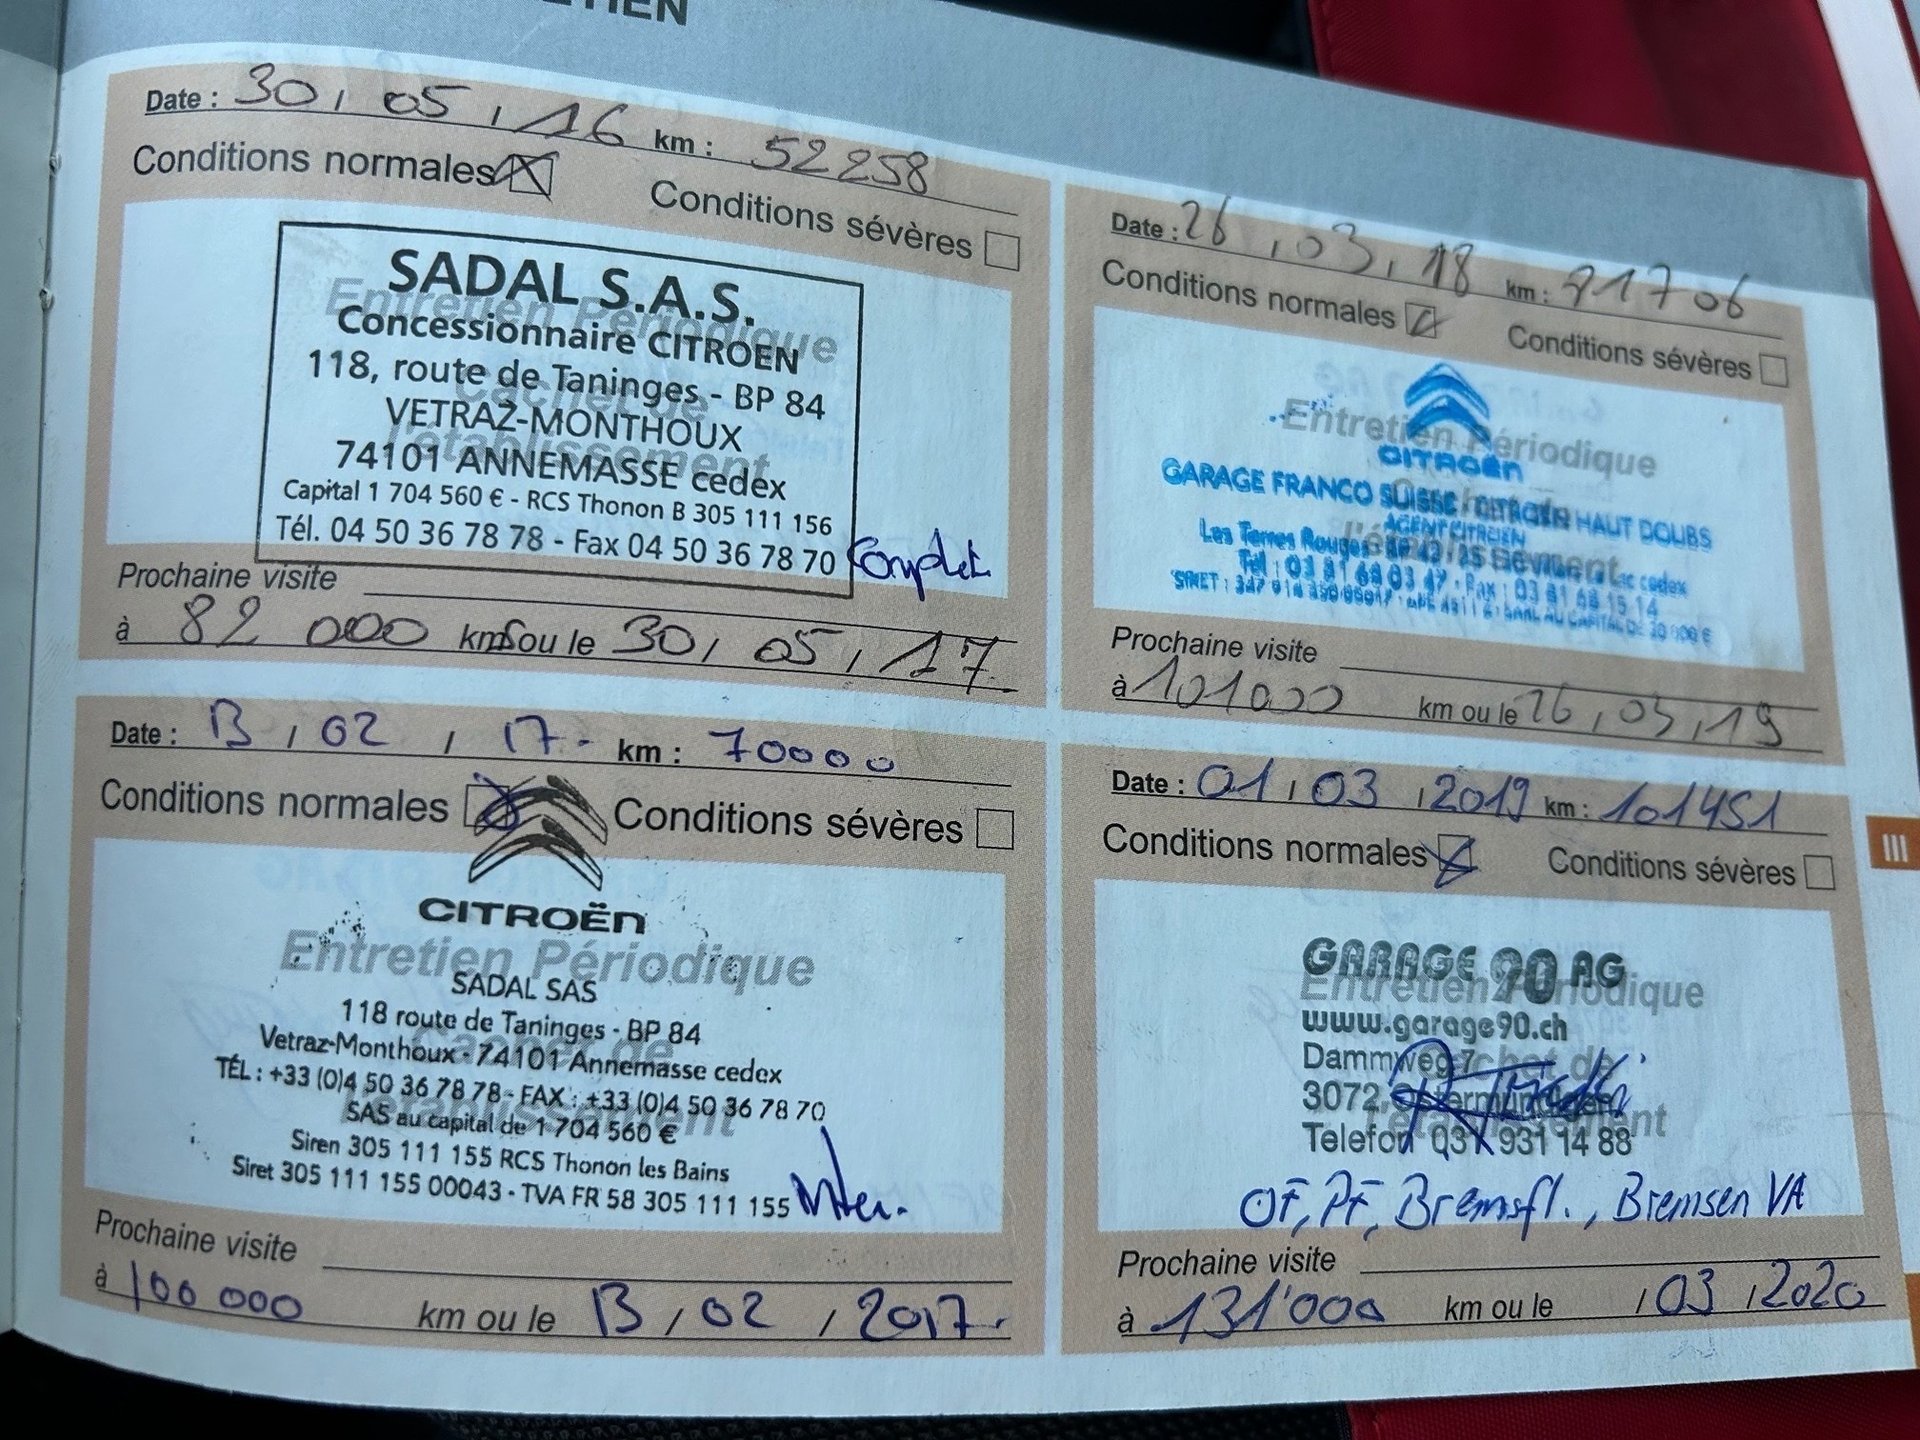 Date : 30, 05, 16 km : 52258
Conditions normales Conditions sévères
SADAL S.A.S.
Entretien Périodique
Concessionnaire CITROEN
118, route de Taninges - BP 84
Cachet de
VETRAZ-MONTHOUX
l'établissement
74101 ANNEMASSE cedex
Capital 1 704 560 € - RCS Thonon B 305 111 156
Tél. 04 50 36 78 78 - Fax 04 50 36 78 70 Complet
Prochaine visite
à 82 000 kms ou le 30, 05, 17
Date : 13, 02, 17. km : 70000
Conditions normales Conditions sévères
CITROËN
Entretien Périodique
SADAL SAS
118 route de Taninges - BP 84
Vetraz-Monthoux - 74101 Annemasse cedex
Cachet de
TÉL : +33 (0)4 50 36 78 78 - FAX : +33 (0)4 50 36 78 70
l'établissement
SAS au capital de 1 704 560 €
Siren 305 111 155 RCS Thonon les Bains
Siret 305 111 155 00043 - TVA FR 58 305 111 155
Prochaine visite
à 100 000 km ou le 13, 02, 2017.
Date : 26, 03, 18 km : 91706
Conditions normales Conditions sévères
Entretien Périodique
CITROËN
GARAGE FRANCO SUISSE / CITROEN HAUT DOUBS
AGENT CITROEN
Les Terres Rouges cedex
l'établissement
Tél : 03 81 68 03 47 - Fax : 03 81 68 15 14
SIRET :
Prochaine visite
à 101000 km ou le 26, 03, 19
Date : 01, 03, 2019 km : 101451
Conditions normales Conditions sévères
GARAGE 90 AG
Entretien Périodique
www.garage90.ch
Dammweg 7
Cachet de
3072 Ostermundigen
l'établissement
Telefon 031 931 14 88
OF, PF, Bremsfl., Bremsen VA
Prochaine visite
à 131'000 km ou le , 03, 2020
III